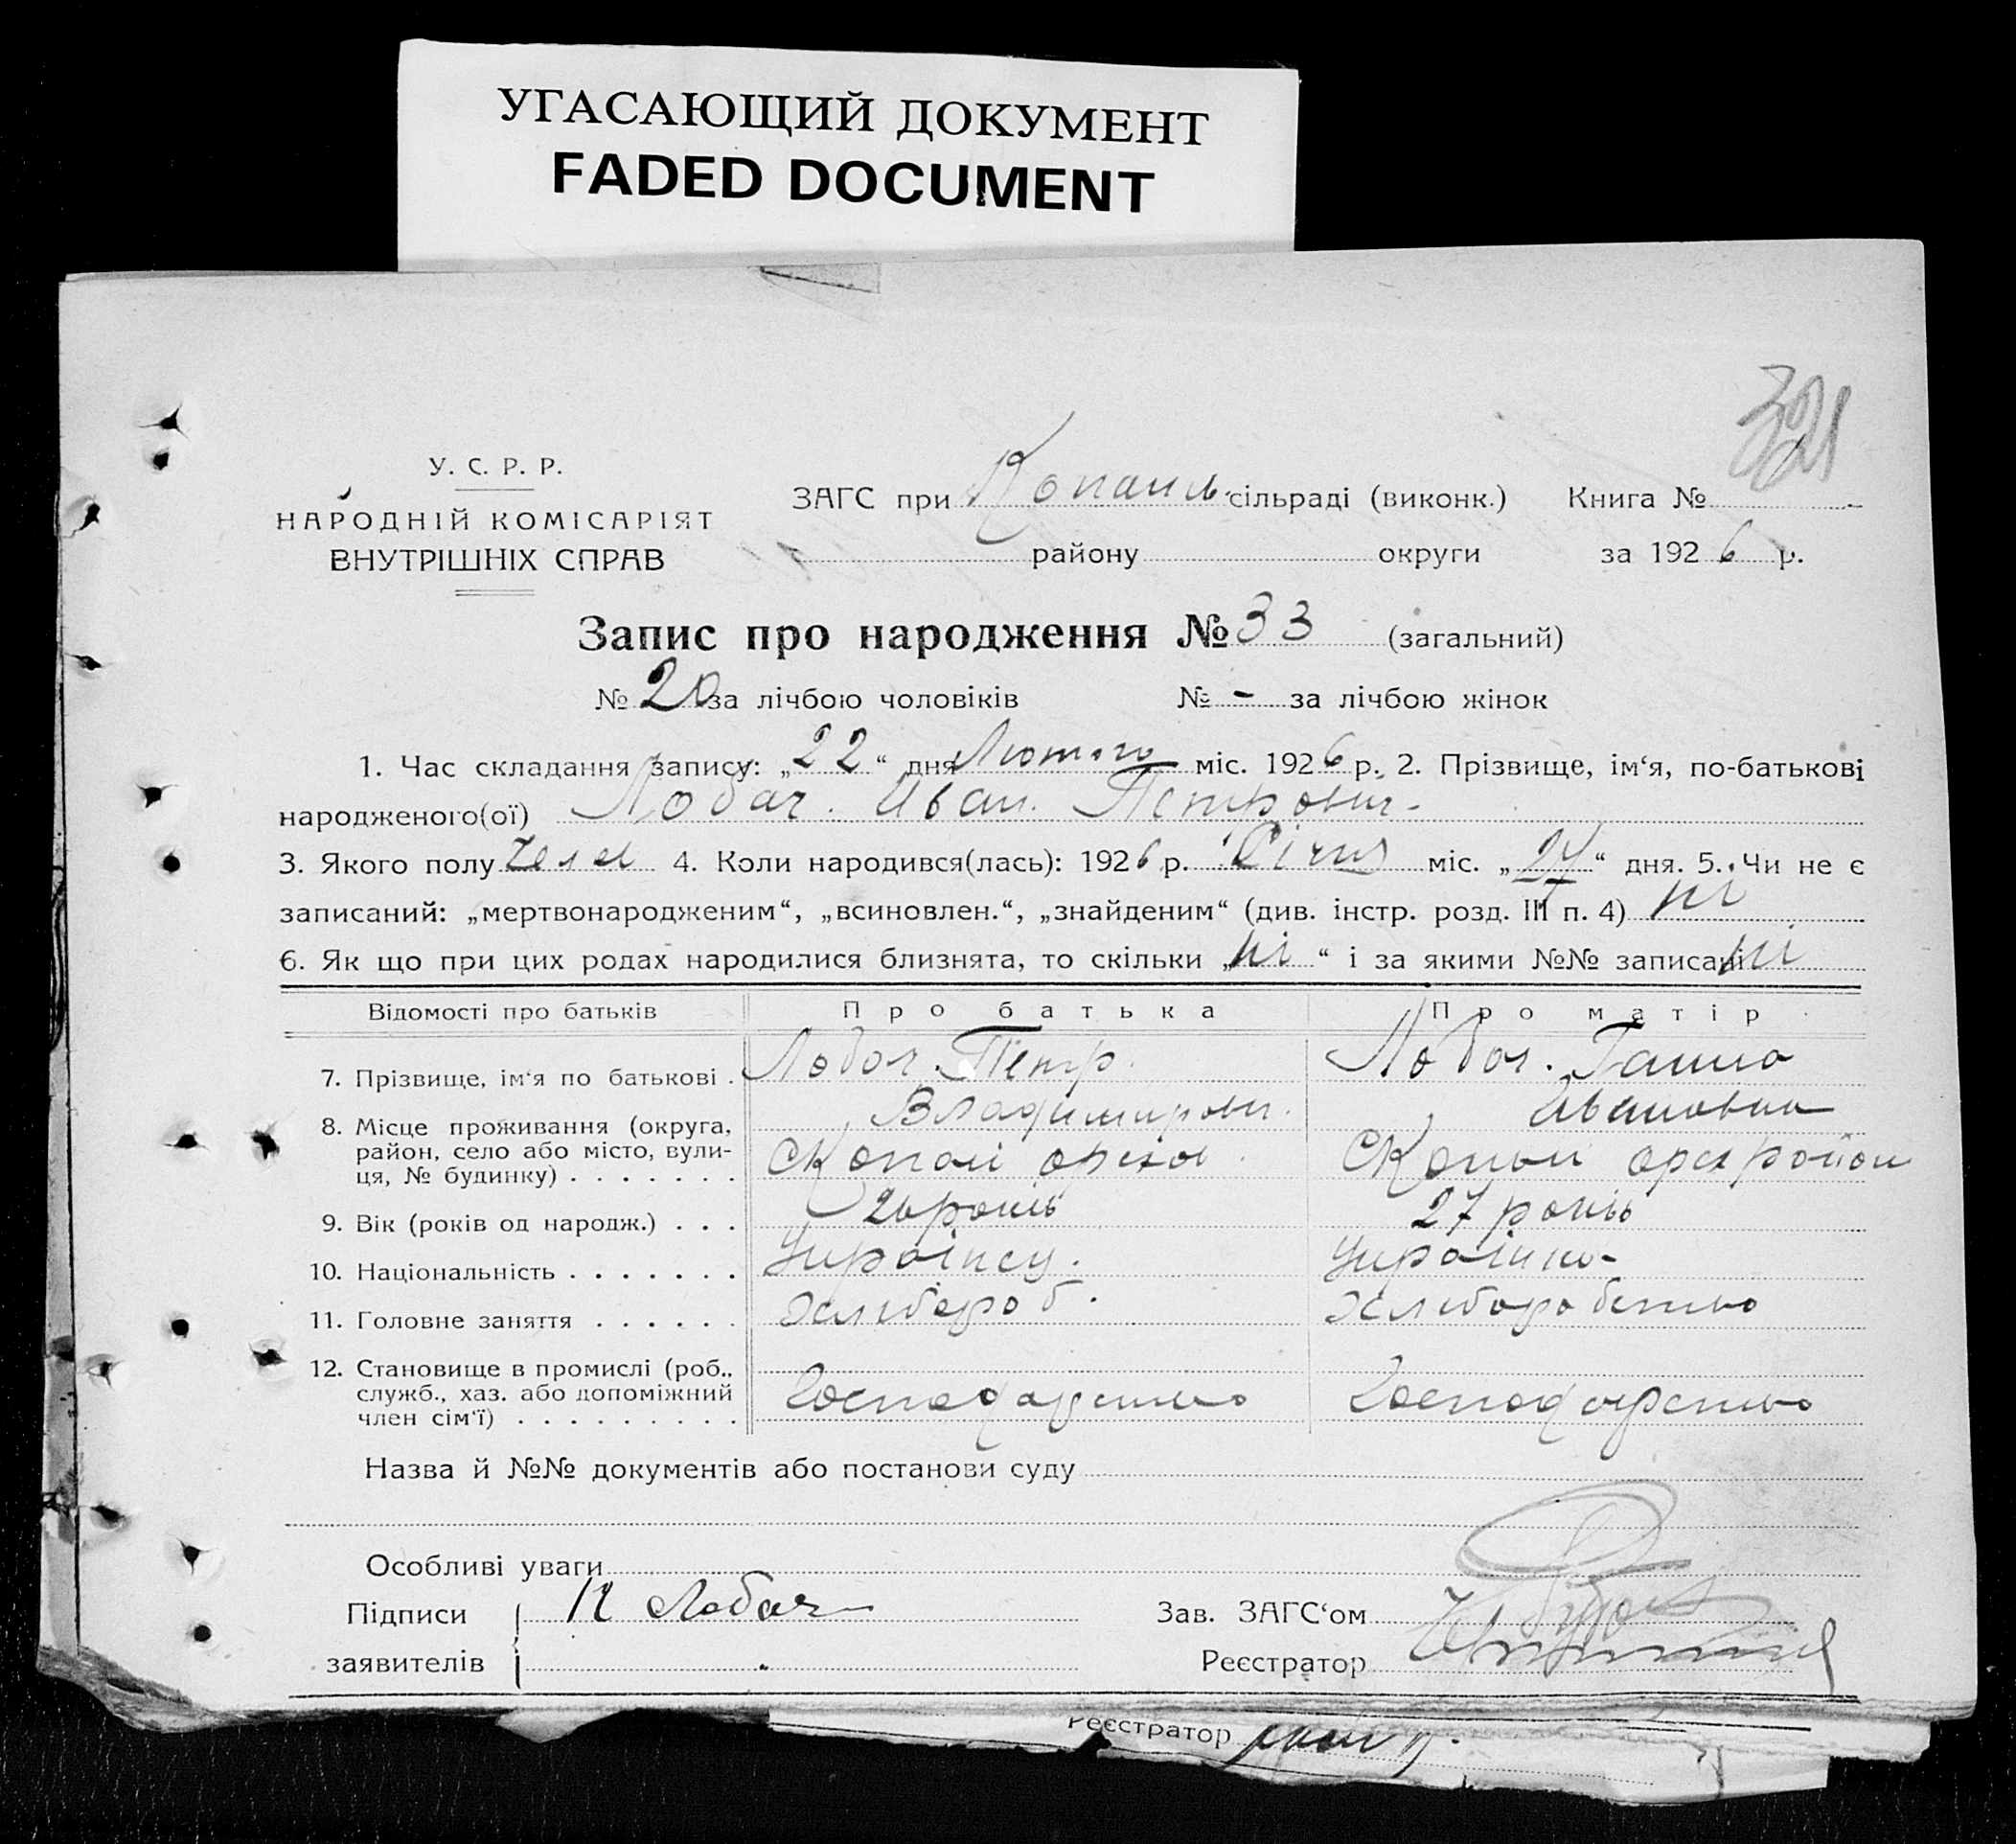 УГАСАЮЩИЙ ДОКУМЕНТ
FADED DOCUMENT
321
У. С. Р. Р.
НАРОДНІЙ КОМІСАРІЯТ
ВНУТРІШНІХ СПРАВ
ЗАГС при Копань сільраді (виконк.) Книга №
району округи за 1926 р.
Запис про народження № 33 (загальний)
№ 20 за лічбою чоловіків № - за лічбою жінок
1. Час складання запису: „22“ дня Лютого міс. 1926 р. 2. Прізвище, ім‘я, по-батькові
народженого(ої) Лобач. Иван. Петрович.
3. Якого полу Челов 4. Коли народився(лась): 1926 р. Січня міс. „24“ дня. 5. Чи не є
записаний: „мертвонародженим“, „всиновлен.“, „знайденим“ (див. інстр. розд. III п. 4) ні
6. Як що при цих родах народилися близнята, то скільки „ні“ і за якими №№ записані ні
Відомості про батьків Про батька Про матір
7. Прізвище, ім‘я по батькові . Лобач. Петр. Лобач. Ганна
Владимирович. Ивановна
8. Місце проживання (округа,
район, село або місто, вули-
ця, № будинку) . . . . . . . С Копані Орехов. С Копані Орех район
9. Вік (років од народж.) . . . 26 років 27 років
10. Національність . . . . . . . Украінец. Украінка
11. Головне заняття . . . . . . Хлибороб. Хлиборобство
12. Становище в промислі (роб.,
служб., хаз. або допоміжний
член сім‘ї) . . . . . . . . . Господарство Господарство
Назва й №№ документів або постанови суду
Особливі уваги
Підписи П Лобач Зав. ЗАГС‘ом
заявителів Реєстратор
Реєстратор